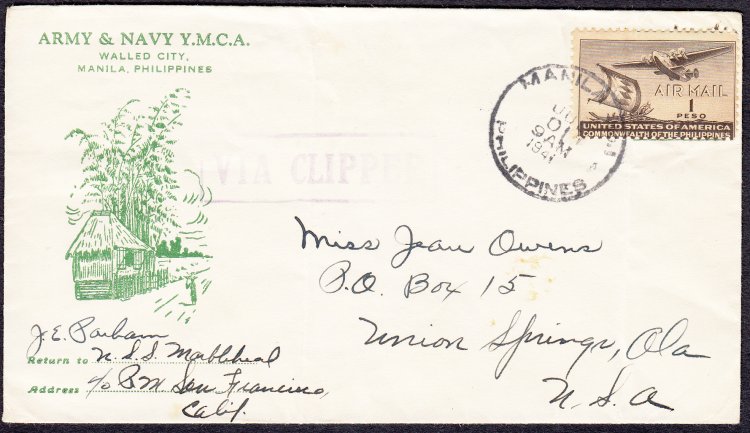 ARMY & NAVY Y.M.C.A.
WALLED CITY,
MANILA, PHILIPPINES
AIR MAIL
1
PESO
UNITED STATES OF AMERICA
COMMONWEALTH OF THE PHILIPPINES
MANILA
01
9AM
1941
PHILIPPINES
VIA CLIPPER
Miss Jean Owens
P.O. Box 15
Union Springs, Ala
U.S.A
J.E. Parham
Return to U.S.S. Marblehead
Address c/o P.M. San Francisco,
Calif.